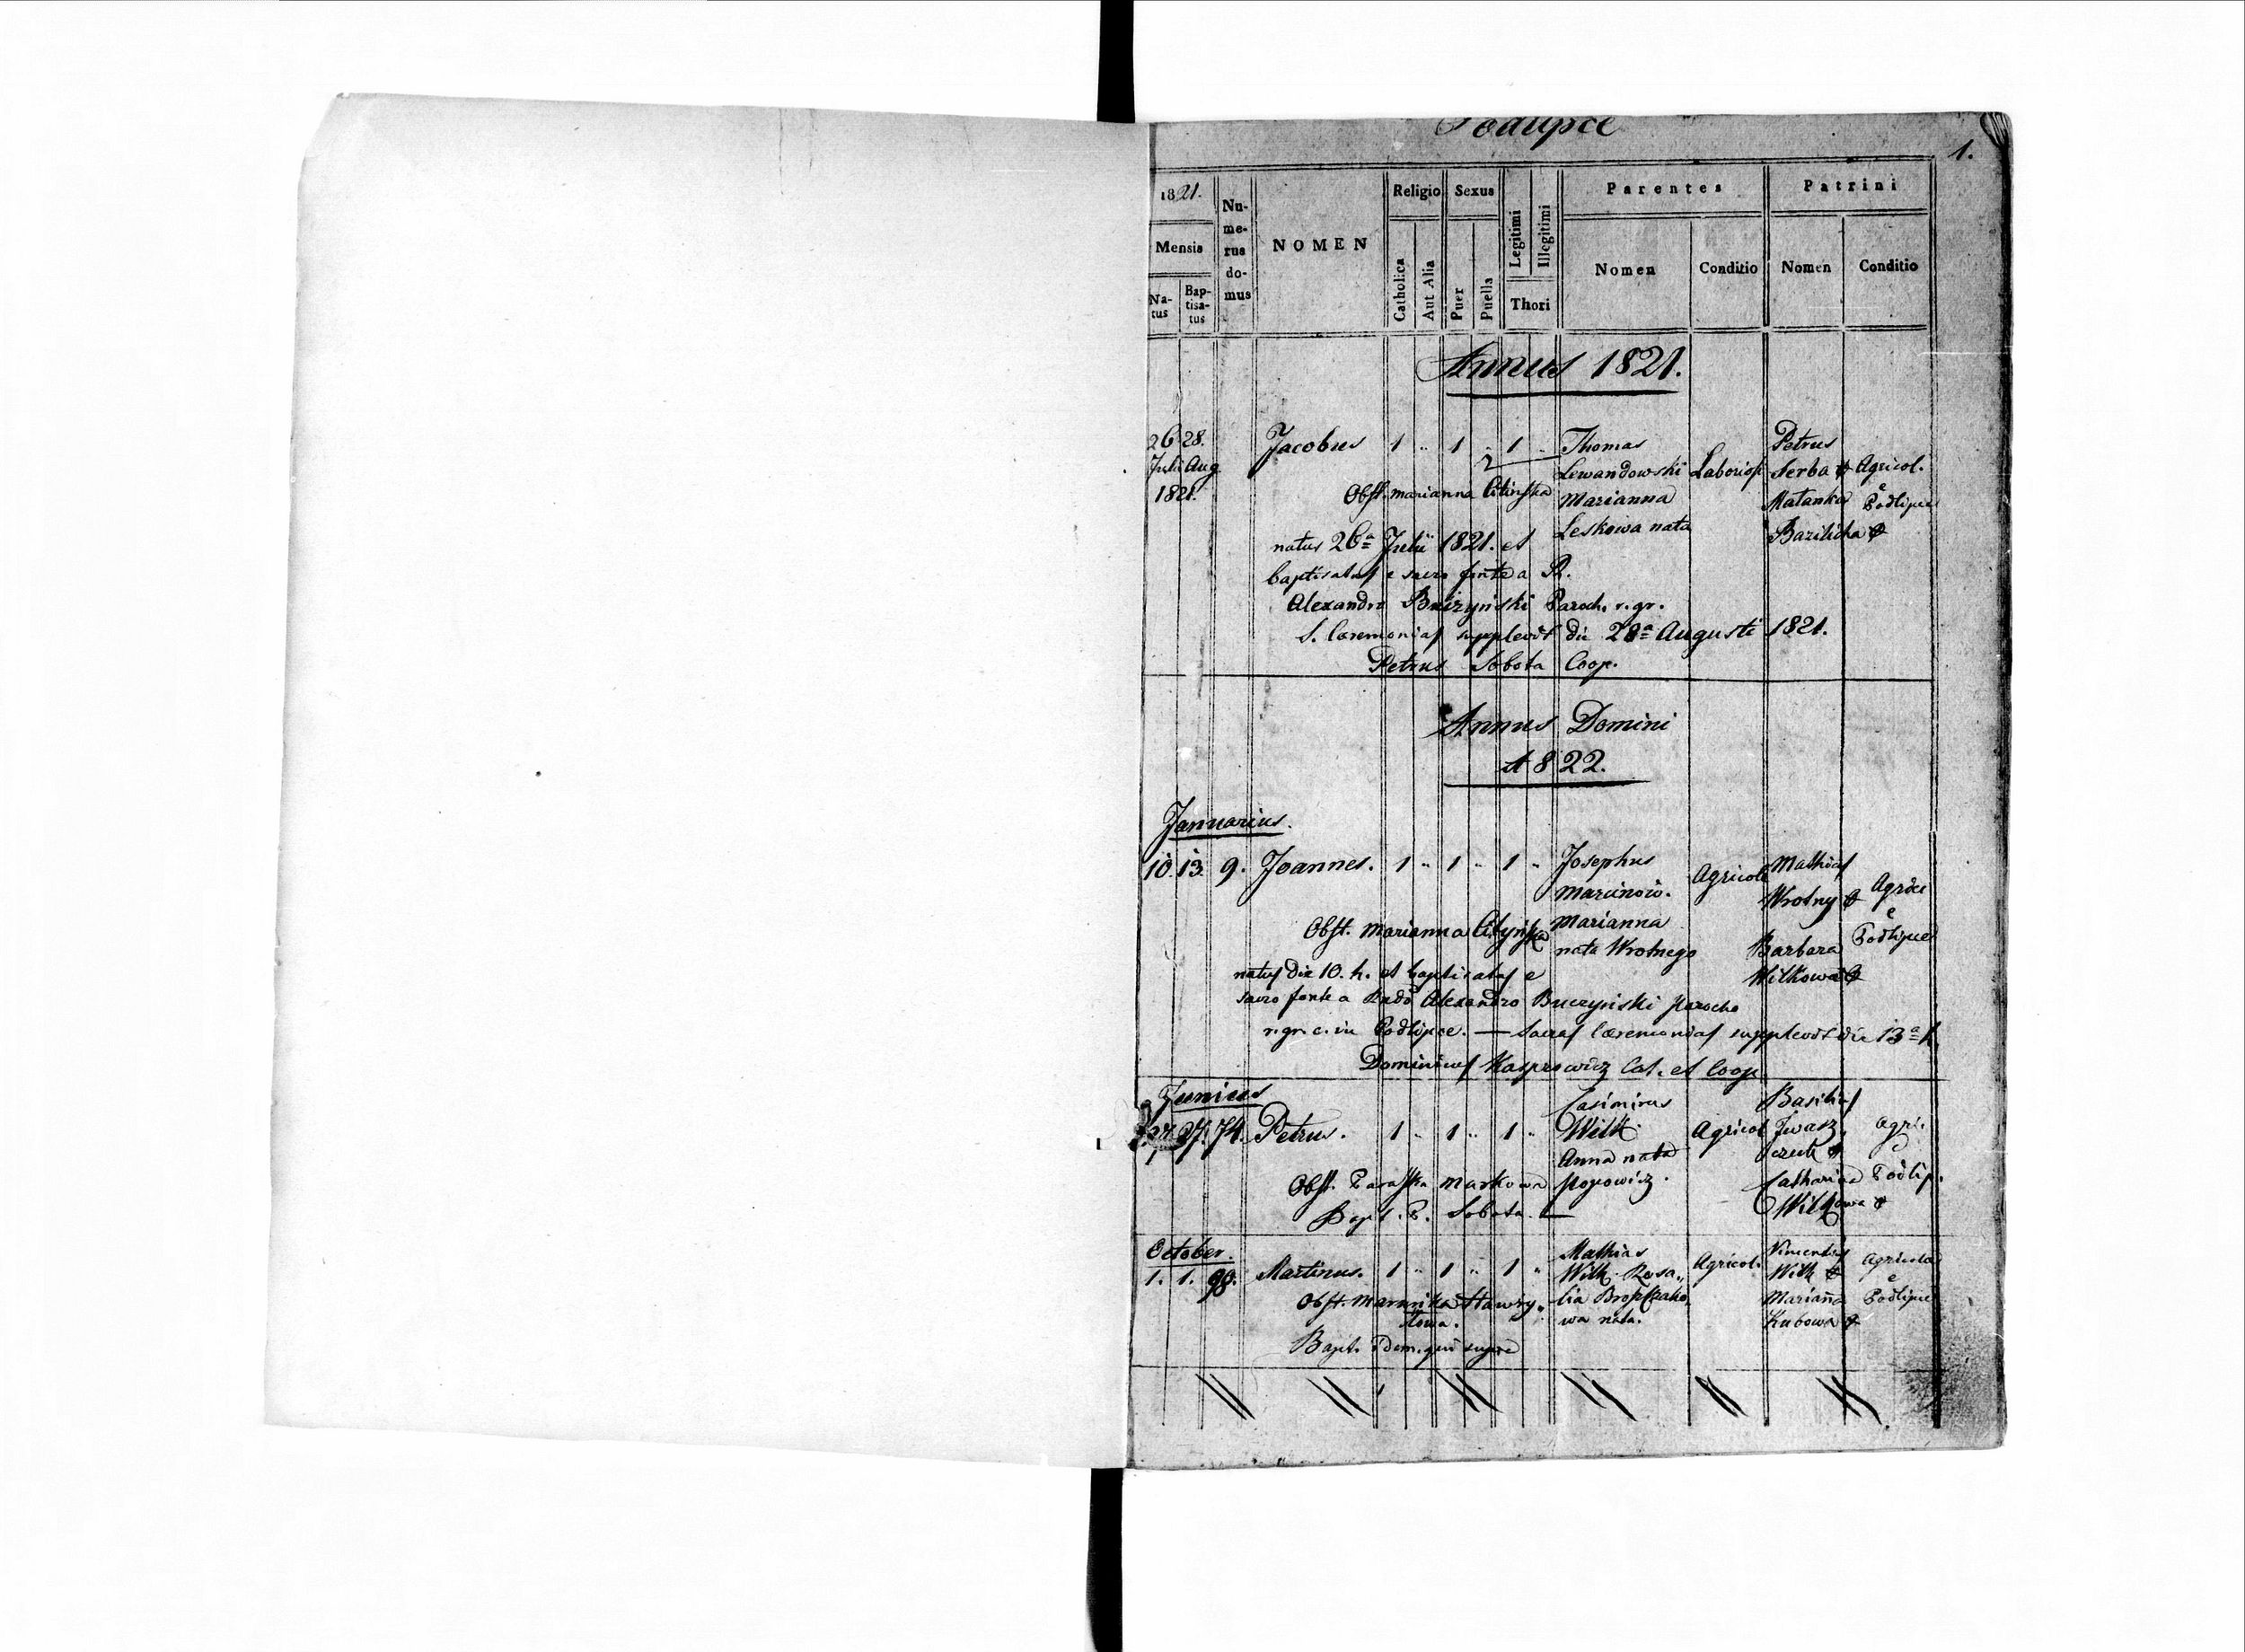 Podlipce
1.
1821.
Mensis
Natus
Baptisatus
Numerus domus
NOMEN
Religio
Catholica
Aut Alia
Sexus
Puer
Puella
Legitimi
Illegitimi
Thori
Parentes
Nomen
Conditio
Patrini
Nomen
Conditio
Annus 1821.
26 28. Jacobus 1 " 1 " 1 " Thomas Petrus
Julii Aug Lewandowski Laborios Serba Agricol.
1821. Obst. Marianna Marianna Matanka e Podlipce
Leskowa nata
natus 26a Julii 1821. et
baptisatus e sacro fonte a R.
Alexandro Buczyński Paroch. r. gr.
S. Caeremonias supplevit die 28a Augusti 1821.
Petrus Sobota Coop.
Annus Domini
1822.
Januarius.
10. 13. 9. Joannes. 1 " 1 " 1 " Josephus Agricola Mathias
Marcinow. Wrotny Agrico
Obst. Marianna Marianna e
nata Wrotnego Barbara Podlipce
natus die 10. h. et baptisatus e Wilkowa
sacro fonte a Alexandro Buczyński parocho
r. gr. c. in Podlipce. — Sacras Caeremonias supplevit die 13a h.
Dominicus Kasprowicz Cat. et Coop.
Junius
27. 74. Petrus. 1 " 1 " 1 " Casimirus Wilk Agricol Basilius Iwaszczuk Agri.
Anna nata e
Obst. Paraska Markowa Popowicz. Catharina Podlip.
Bapt. P. Sobota. — Wilkowa
October.
1. 1. 98. Martinus. 1 " 1 " 1 " Mathias Agricol. Vincentius Agricola
Wilk. Rosa„ Wilk e
Obst. lia Marianna Podlipce
wa nata. Kubowa
Bapt. Idem. qui supra